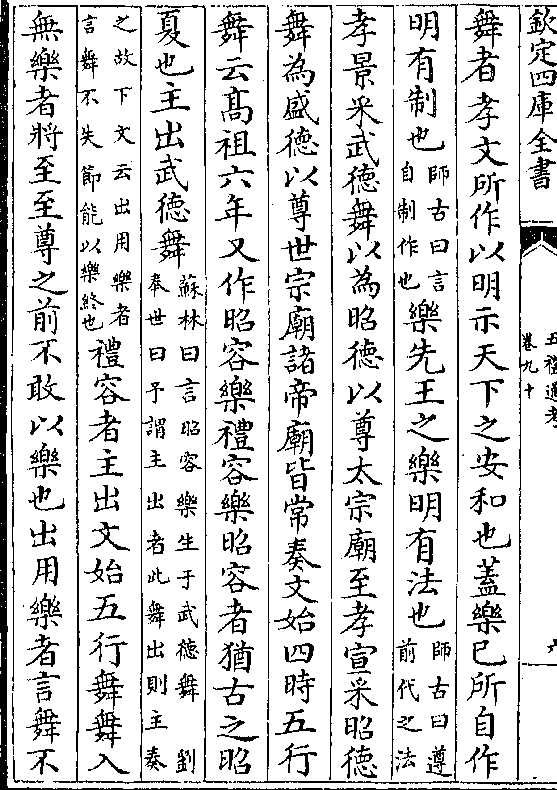 欽定四庫全書
五禮通考
卷九十
舞者孝文所作以明示天下之安和也蓋樂己所自作
明有制也師古曰言自制作也樂先王之樂明有法也師古曰遵前代之法
孝景采武德舞以為昭德以尊太宗廟至孝宣采昭德
舞為盛德以尊世宗廟諸帝廟皆常奏文始四時五行
舞云高祖六年又作昭容樂禮容樂昭容者猶古之昭
夏也主出武德舞蘇林曰言昭容樂生于武德舞劉奉世曰予謂主出者此舞出則主奏
之故下文云出用樂者言舞不失節能以樂終也禮容者主出文始五行舞舞入
無樂者將至至尊之前不敢以樂也出用樂者言舞不